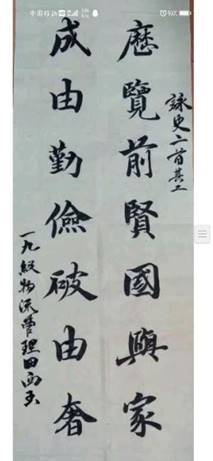 中国移动
詠史二首其二
歷覽前賢國與家
成由勤儉破由奢
一九級物流管理田雨玉